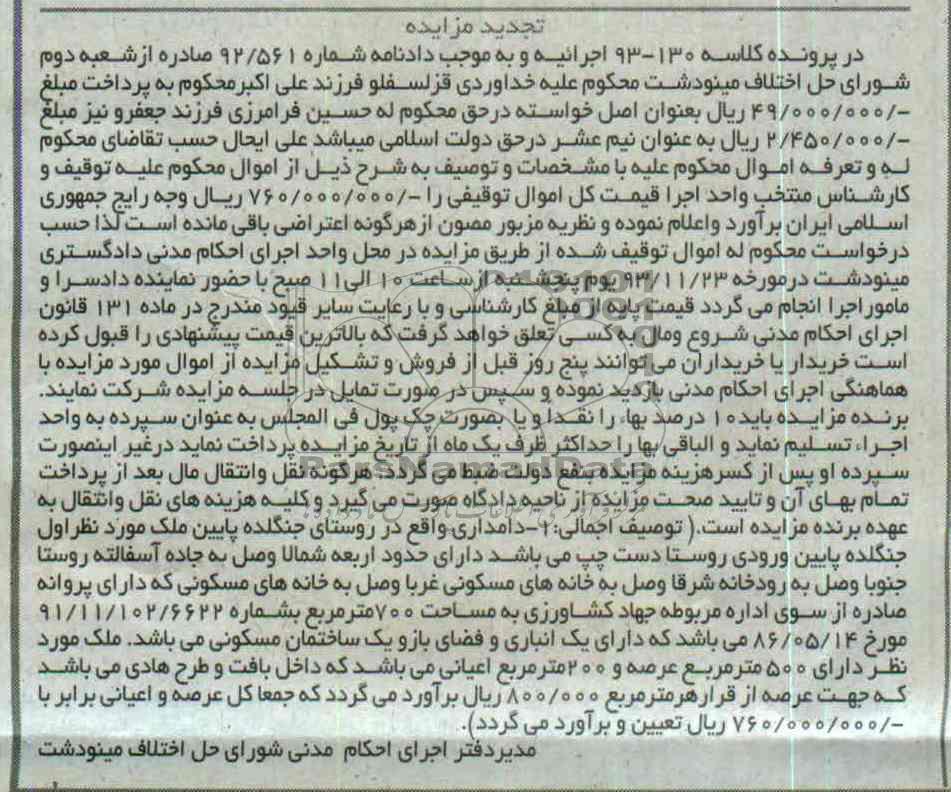 تجدید مزایده
در پرونده کلاسه ۱۳۰-۹۳ اجرائیه و به موجب دادنامه شماره ۹۲/۵۶۱ صادره از شعبه دوم
شورای حل اختلاف مینودشت محکوم علیه خداوردی قزلسفلو فرزند علی اکبر محکوم به پرداخت مبلغ
۴۹/۰۰۰/۰۰۰/- ریال بعنوان اصل خواسته در حق محکوم له حسین فرامرزی فرزند جعفر و نیز مبلغ
۲/۴۵۰/۰۰۰/- ریال به عنوان نیم عشر در حق دولت اسلامی میباشد علی ایحال حسب تقاضای محکوم
له و تعرفه اموال محکوم علیه با مشخصات و توصیف به شرح ذیل از اموال محکوم علیه توقیف و
کارشناس منتخب واحد اجرا قیمت کل اموال توقیفی را ۷۶۰/۰۰۰/۰۰۰/- ریال وجه رایج جمهوری
اسلامی ایران برآورد و اعلام نموده و نظریه مزبور مصون از هرگونه اعتراضی باقی مانده است لذا حسب
درخواست محکوم له اموال توقیف شده از طریق مزایده در محل واحد اجرای احکام مدنی دادگستری
مینودشت در مورخه ۹۳/۱۱/۲۳ یوم پنجشنبه از ساعت ۱۰ الی ۱۱ صبح با حضور نماینده دادسرا و
مامور اجرا انجام می گردد قیمت پایه از مبلغ کارشناسی و با رعایت سایر قیود مندرج در ماده ۱۳۱ قانون
اجرای احکام مدنی شروع و مال به کسی تعلق خواهد گرفت که بالاترین قیمت پیشنهادی را قبول کرده
است خریدار یا خریداران می توانند پنج روز قبل از فروش و تشکیل مزایده از اموال مورد مزایده با
هماهنگی اجرای احکام مدنی بازدید نموده و سپس در صورت تمایل در جلسه مزایده شرکت نمایند.
برنده مزایده باید ۱۰ درصد بهاء را نقدا و یا بصورت چک پول فی المجلس به عنوان سپرده به واحد
اجراء تسلیم نماید و الباقی بها را حداکثر ظرف یک ماه از تاریخ مزایده پرداخت نماید در غیر اینصورت
سپرده او پس از کسر هزینه مزایده بنفع دولت ضبط می گردد. هرگونه نقل و انتقال مال بعد از پرداخت
تمام بهای آن و تایید صحت مزایده از ناحیه دادگاه صورت می گیرد و کلیه هزینه های نقل و انتقال به
عهده برنده مزایده است.( توصیف اجمالی:۱-دامداری واقع در روستای جنگلده پایین ملک مورد نظر اول
جنگلده پایین ورودی روستا دست چپ می باشد دارای حدود اربعه شمالا وصل به جاده آسفالته روستا
جنوبا وصل به رودخانه شرقا وصل به خانه های مسکونی غربا وصل به خانه های مسکونی که دارای پروانه
صادره از سوی اداره مربوطه جهاد کشاورزی به مساحت ۷۰۰مترمربع بشماره ۹۱/۱۱/۱۰۲/۶۶۲۲
مورخ ۸۶/۰۵/۱۴ می باشد که دارای یک انباری و فضای باز و یک ساختمان مسکونی می باشد. ملک مورد
نظر دارای ۵۰۰ مترمربع عرصه و ۲۰۰مترمربع اعیانی می باشد که داخل بافت و طرح هادی می باشد
که جهت عرصه از قرار هر مترمربع ۸۰۰/۰۰۰ ریال برآورد می گردد که جمعا کل عرصه و اعیانی برابر با
۷۶۰/۰۰۰/۰۰۰/- ریال تعیین و برآورد می گردد).
مدیر دفتر اجرای احکام مدنی شورای حل اختلاف مینودشت
ParsNamadData